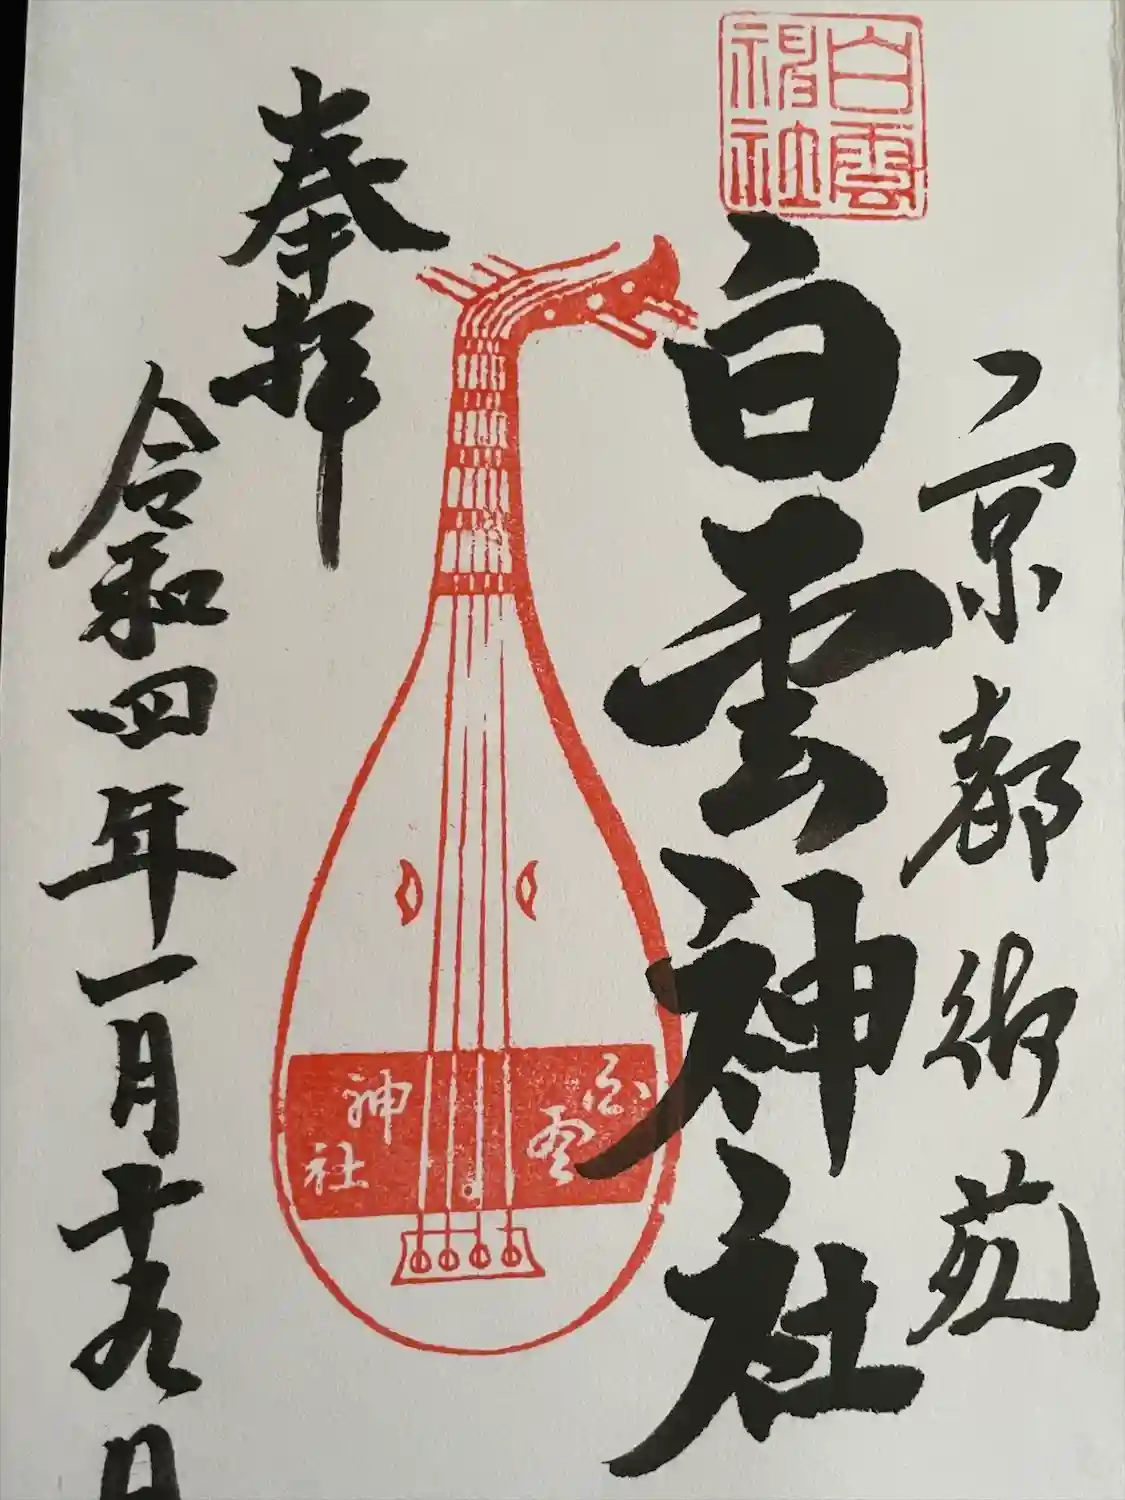 京都御苑
白雲神社
白雲神社
白雲
神社
奉拝
令和四年一月十九日